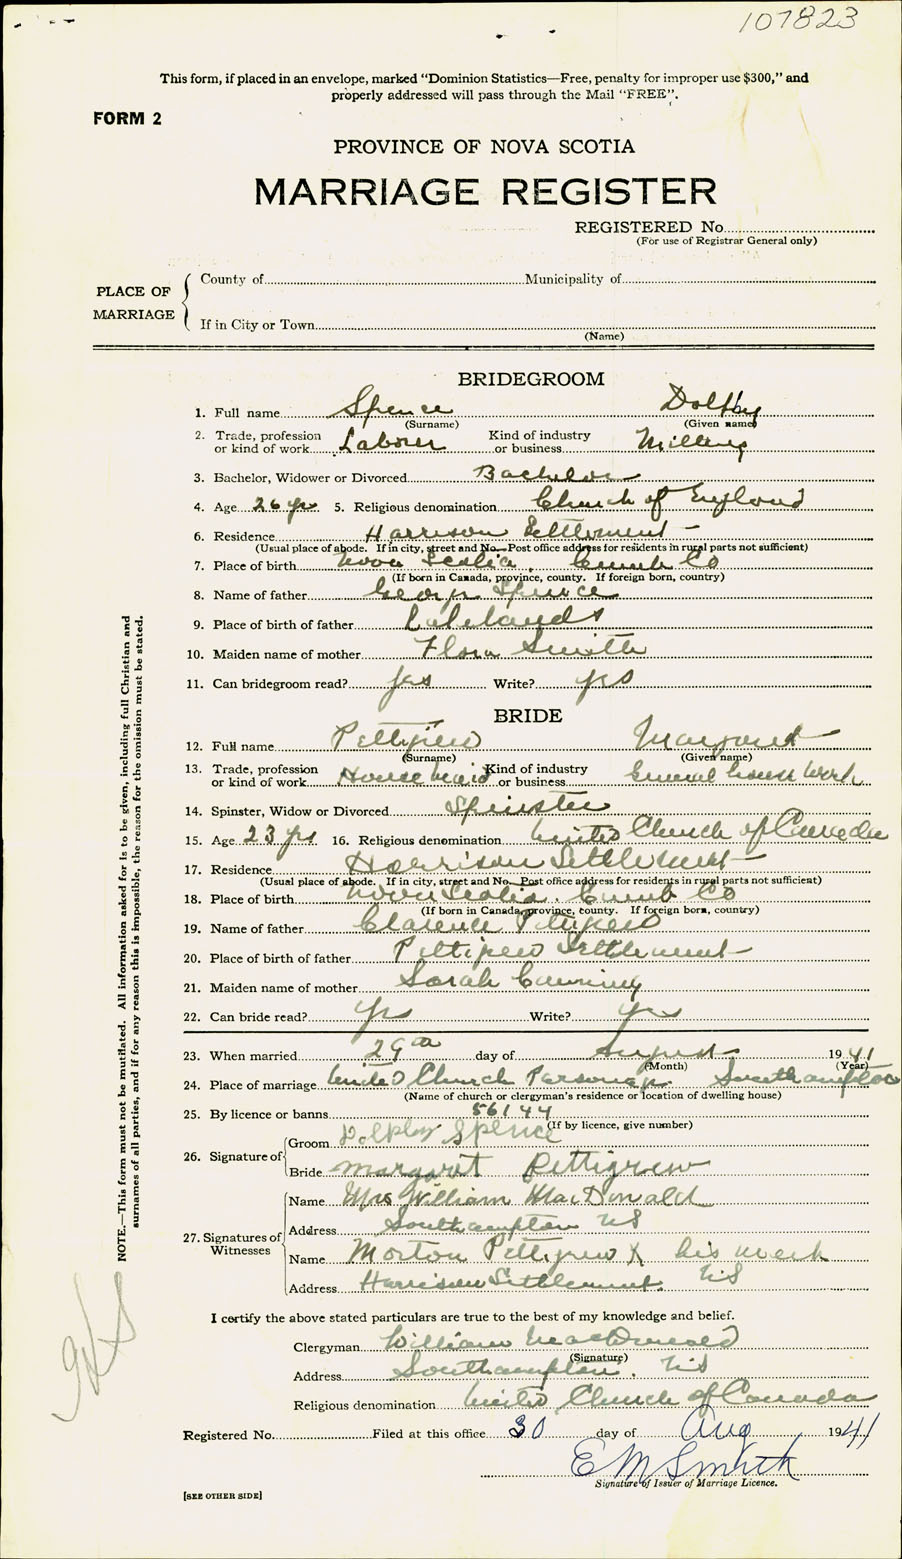 107823
This form, if placed in an envelope, marked “Dominion Statistics—Free, penalty for improper use $300,” and
properly addressed will pass through the Mail “FREE”.
FORM 2
PROVINCE OF NOVA SCOTIA
MARRIAGE REGISTER
REGISTERED No.
(For use of Registrar General only)
PLACE OF MARRIAGE
County of Municipality of
If in City or Town
(Name)
BRIDEGROOM
1. Full name Spence
(Surname) (Given name)
2. Trade, profession or kind of work Laborer Kind of industry or business Milling
3. Bachelor, Widower or Divorced Bachelor
4. Age 26 yrs 5. Religious denomination Church of England
6. Residence Harrison Settlement
(Usual place of abode. If in city, street and No. Post office address for residents in rural parts not sufficient)
7. Place of birth Nova Scotia. Cumb Co
(If born in Canada, province, county. If foreign born, country)
8. Name of father George Spence
9. Place of birth of father Lakelands
10. Maiden name of mother Flora Smith
11. Can bridegroom read? yes Write? yes
BRIDE
12. Full name Pettigrew Margaret
(Surname) (Given name)
13. Trade, profession or kind of work House Maid Kind of industry or business General house work
14. Spinster, Widow or Divorced Spinster
15. Age 23 yrs 16. Religious denomination United Church of Canada
17. Residence Harrison Settlement
(Usual place of abode. If in city, street and No. Post office address for residents in rural parts not sufficient)
18. Place of birth Nova Scotia. Cumb Co
(If born in Canada, province, county. If foreign born, country)
19. Name of father Clarence Pettigrew
20. Place of birth of father Pettigrew Settlement
21. Maiden name of mother Sarah Canning
22. Can bride read? Yes Write? yes
23. When married 29th day of August 1941
(Month) (Year)
24. Place of marriage United Church Parsonage. Southampton
(Name of church or clergyman's residence or location of dwelling house)
25. By licence or banns 56144
(If by licence, give number)
26. Signature of
Groom Spence
Bride Margaret Pettigrew
27. Signatures of Witnesses
Name Mrs William MacDonald
Address Southampton NS
Name Morton Pettigrew X his mark
Address Harrison Settlement. NS
I certify the above stated particulars are true to the best of my knowledge and belief.
Clergyman William MacDonald
(Signature)
Address Southampton. NS
Religious denomination United Church of Canada
Registered No. Filed at this office 30 day of Aug 1941
E M Smith
Signature of Issuer of Marriage Licence.
[SEE OTHER SIDE]
NOTE.—This form must not be mutilated. All information asked for is to be given, including full Christian and
surnames of all parties, and if for any reason this is impossible, the reason for the omission must be stated.